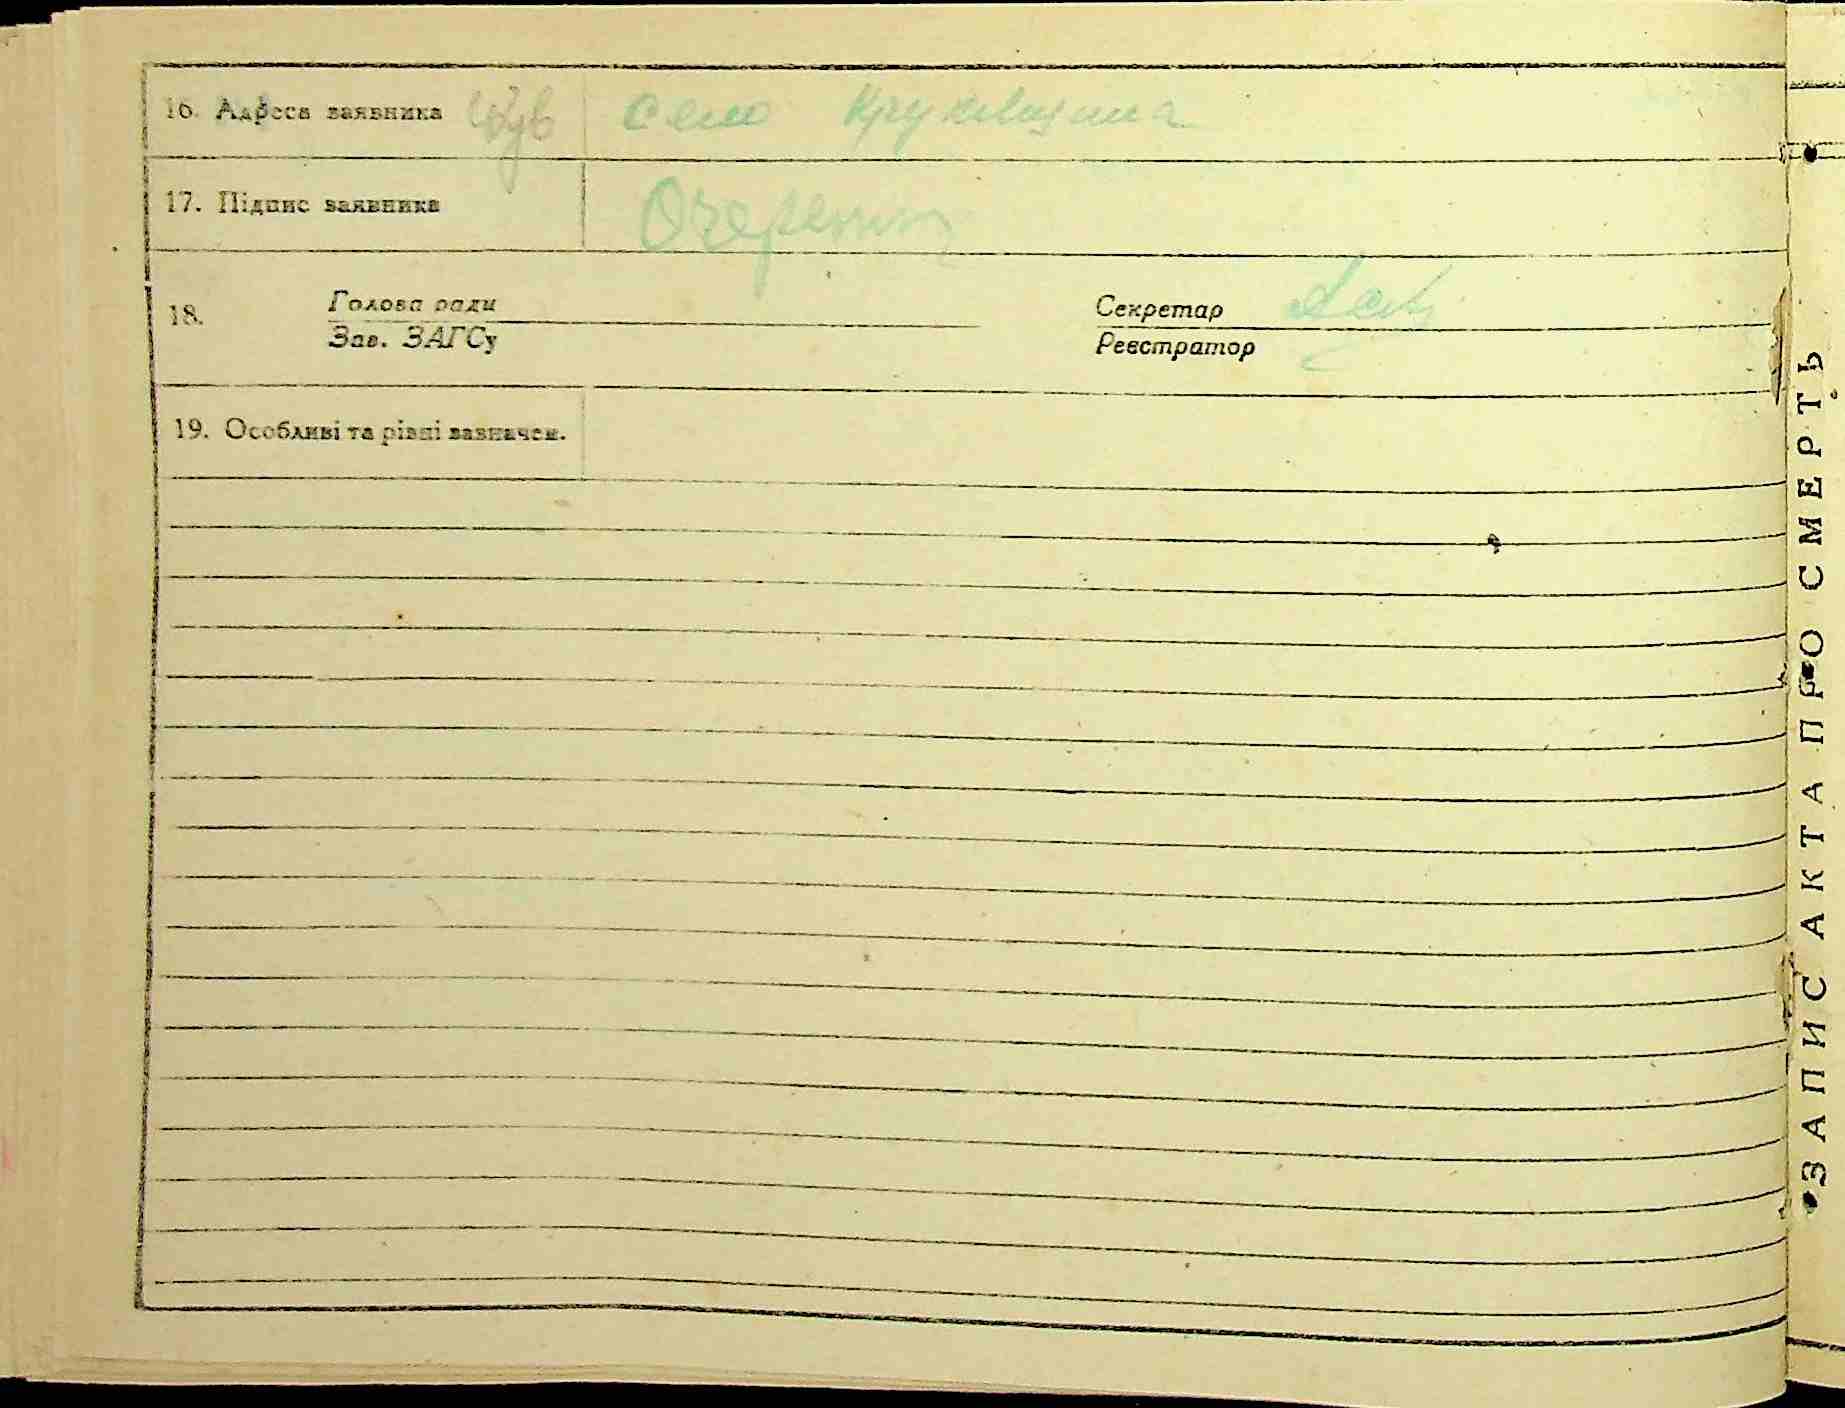 16. Адреса заявника село Круківщина
17. Підпис заявника
18. Голова ради Секретар
Зав. ЗАГСу Реєстратор
19. Особливі та різні зазначен.
ЗАПИС АКТА ПРО СМЕРТЬ